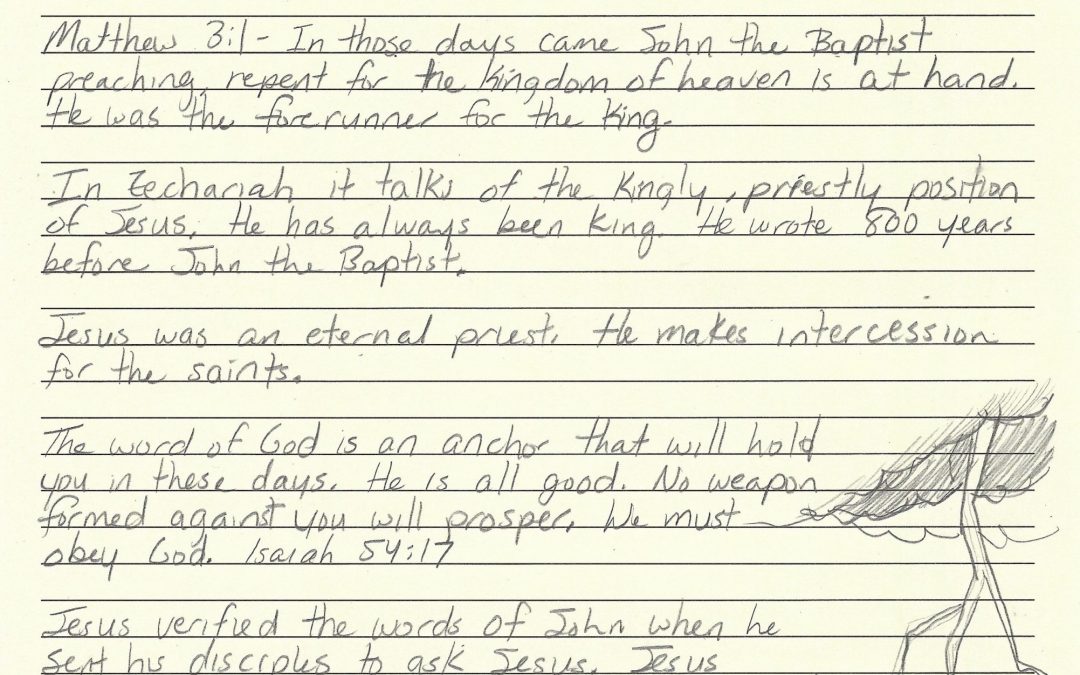 Matthew 3:1 - In those days came John the Baptist
preaching, repent for the kingdom of heaven is at hand.
He was the forerunner for the King.
In Zechariah it talks of the Kingly, priestly position
of Jesus. He has always been King. He wrote 800 years
before John the Baptist.
Jesus was an eternal priest. He makes intercession
for the saints.
The word of God is an anchor that will hold
you in these days. He is all good. No weapon
formed against you will prosper. We must
obey God. Isaiah 54:17
Jesus verified the words of John when he
sent his disciples to ask Jesus. Jesus